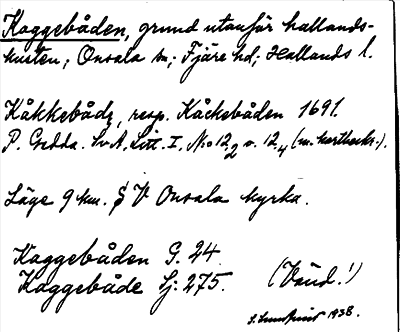 Kaggebåden, grund utanför hallands-
kusten; Onsala sn; Fjäre hd; Hallands l.
Kåkkebåde, resp. Kåckebåden 1691.
P. Gedda. Sv. A. Litt. I, No 12,2 o. 12,4 (m. kartbeskr.).
Läge 9 km. S V Onsala kyrka.
Kaggebåden G. 24.
Kaggebåde Sj: 275. (Vänd!)
1938.